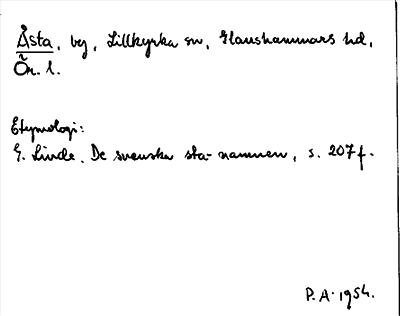 Åsta, by, Lillkyrka sn, Glanshammars hd,
Ör. l.
Etymologi:
G. Linde, De svenska sta-namnen, s. 207 f.
P.A. 1954.